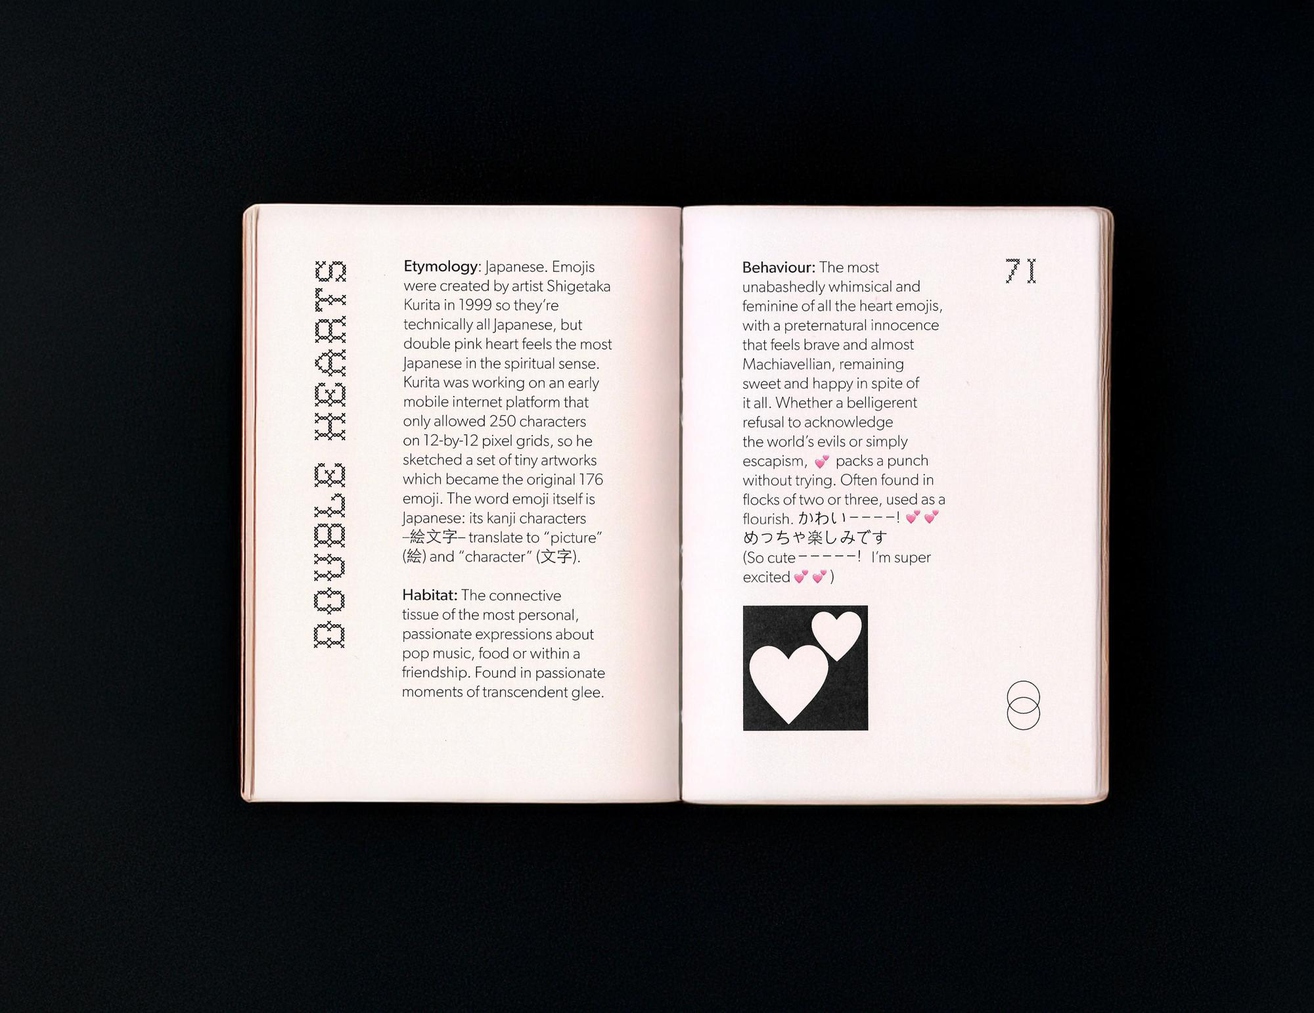 DOUBLE HEARTS
Etymology: Japanese. Emojis
were created by artist Shigetaka
Kurita in 1999 so they’re
technically all Japanese, but
double pink heart feels the most
Japanese in the spiritual sense.
Kurita was working on an early
mobile internet platform that
only allowed 250 characters
on 12-by-12 pixel grids, so he
sketched a set of tiny artworks
which became the original 176
emoji. The word emoji itself is
Japanese: its kanji characters
–絵文字– translate to “picture”
(絵) and “character” (文字).
Habitat: The connective
tissue of the most personal,
passionate expressions about
pop music, food or within a
friendship. Found in passionate
moments of transcendent glee.
Behaviour: The most
unabashedly whimsical and
feminine of all the heart emojis,
with a preternatural innocence
that feels brave and almost
Machiavellian, remaining
sweet and happy in spite of
it all. Whether a belligerent
refusal to acknowledge
the world’s evils or simply
escapism, 💕 packs a punch
without trying. Often found in
flocks of two or three, used as a
flourish. かわいーーーー! 💕💕
めっちゃ楽しみです
(So cute–––––! I’m super
excited 💕💕)
71